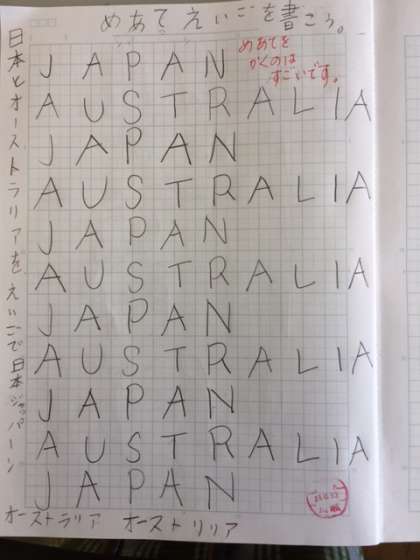 めあて えいごを書こう。
めあてを
かくのは
すごいです。
JAPAN
AUSTRALIA
JAPAN
AUSTRALIA
JAPAN
AUSTRALIA
JAPAN
AUSTRALIA
JAPAN
AUSTRALIA
JAPAN
日本とオーストラリアをえいごで日本ジャパーン
オーストラリア オーストリリア